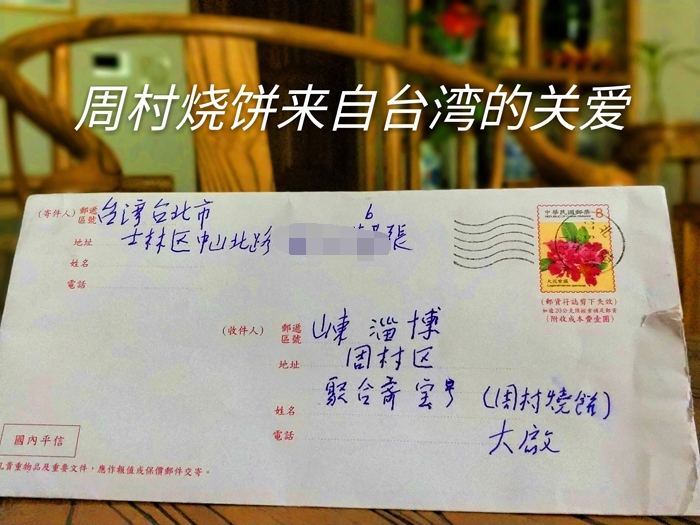 周村烧饼来自台湾的关爱
(寄件人) 郵遞區號 台湾台北市
地址 士林区中山北路 6 張
姓名
電話
中華民國郵票 8
大花紫薇
(郵資符誌剪下失效)
(附收成本費壹圓)
(收件人) 郵遞區號 山東 淄博
地址 周村区
聚合斋宝号 (周村燒餅)
姓名
大啟
電話
國內平信
貴重物品及重要文件，應作報值或保價郵件交寄。